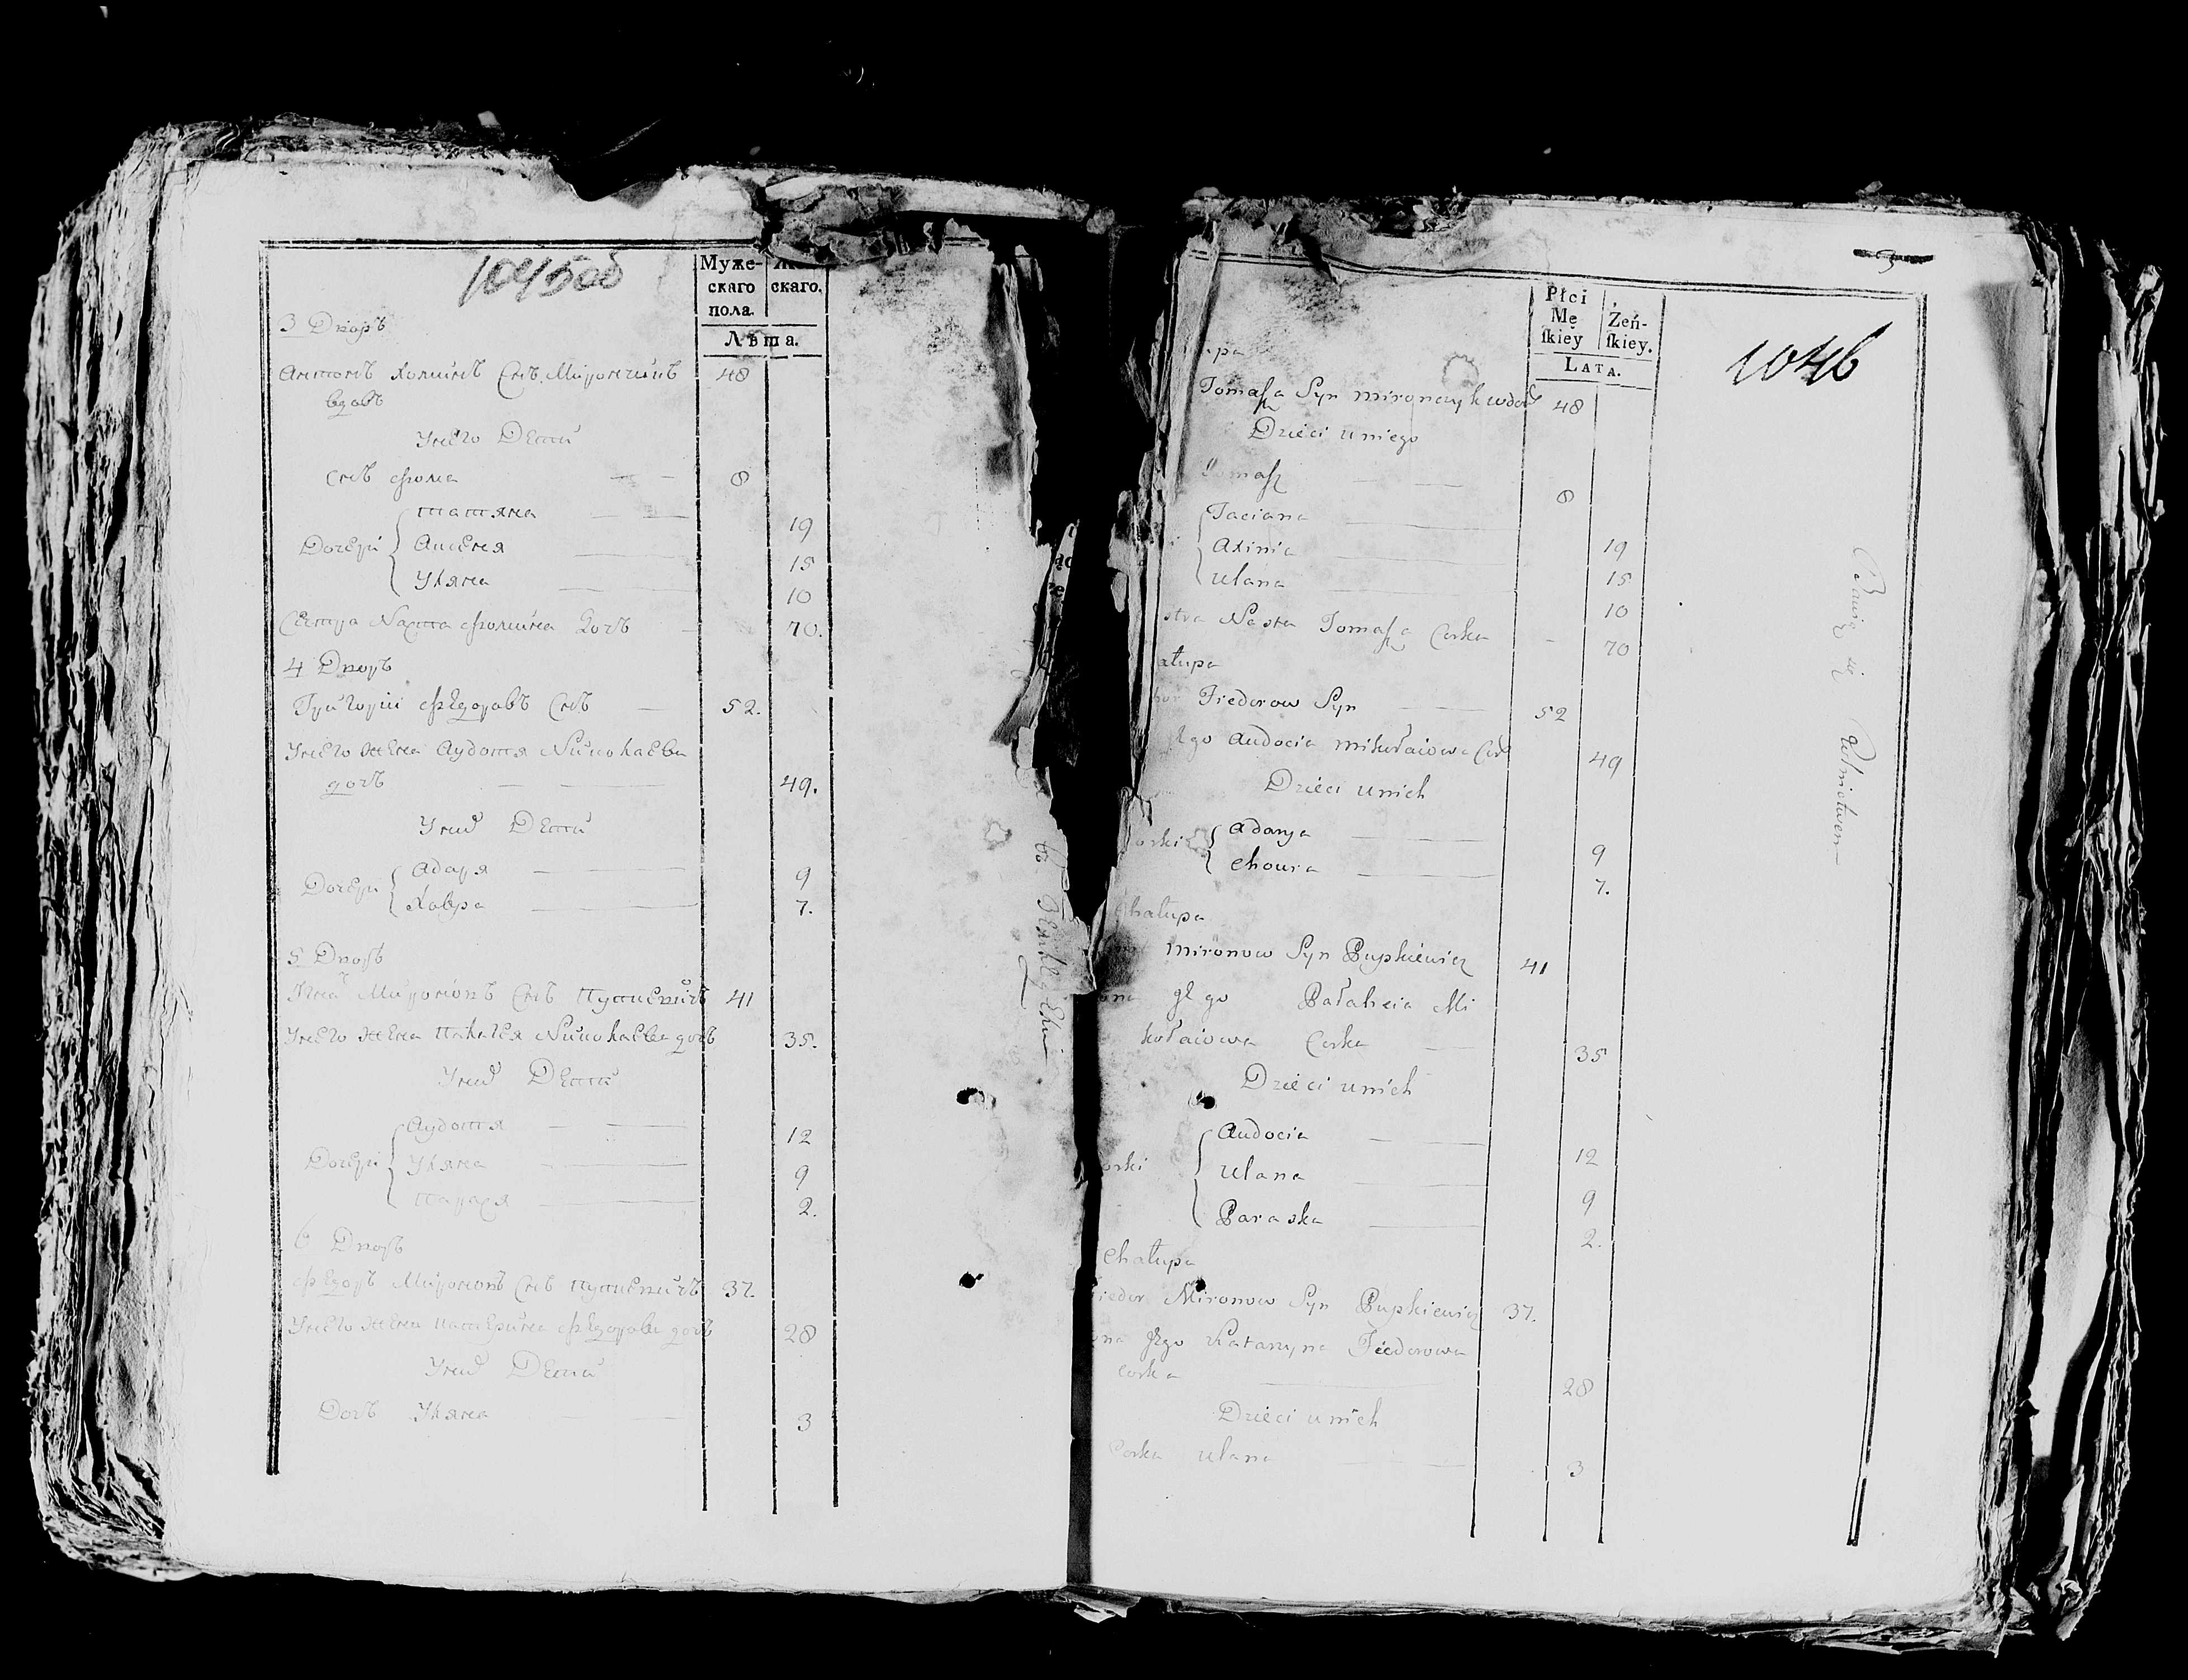 1045 об
Муже-
скаго
пола.
скаго.
Лѣта.
3 Дворъ
Антонъ Хоминъ Снъ Мирончикъ 48
вдовъ
Унего Дети
Снъ Фома — — 8
Татяна — — 19
Дочери Аксеня — 15
Уляна — 10
Сестра Наста Фомина Дочъ — 70.
4 Дворъ
Григорїи Федоровъ Снъ — 52.
Унего Жена Аудотя Николаева
дочъ — — 49.
Уних Дети
Дочери Адаря — — 9
Хавра — 7.
5 Дворъ
Миронов Снъ Пупкевичъ 41
Унего Жена Палагея Николаева дочъ 35.
Уних Дети
Аудотя — — 12
Дочери Уляна — 9
Парася — 2.
6 Дворъ
Федоръ Миронов Снъ Пупкевичъ 37.
Унего Жена Катерина Федорова дочъ 28
Уних Дети
Дочъ Уляна — — 3
Płci
Mę
ſkiey
Żeń-
ſkiey.
LATA.
3
1046
łupa
Tomaſza Syn Mironczyk wdow 48
Dzieci uniego
Tomaſz — — 8
Taciana — 19
Axinia — 15
Ulana — 10
stra Nasta Tomaſza Corka — 70
ałupa
Fiedorow Syn — 52
Jego Audocia Mikołaiowa Cor 49
Dzieci unich
orki Adarya — 9
Chowra — 7.
Chałupa
Mironow Syn Pupkiewicz 41
ona Jego Pałaheia Mi
kołaiowa Corka — 35
Dzieci unich
Audocia — 12
orki Ulana — 9
Paraska — 2.
Chałupa
iedor Mironow Syn Pupkiewicz 37.
ona Jego Katarzyna Fiedorowa
Corka — 28
Dzieci unich
Corka Ulana — 3